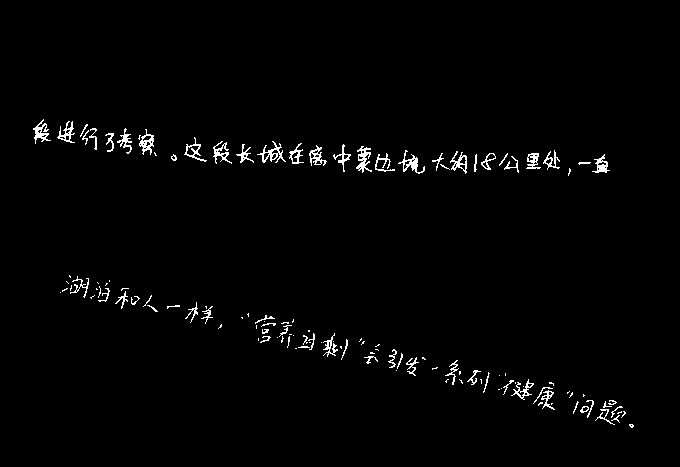 段进行了考察。这段长城在离中蒙边境大约18公里处，一直
湖泊和人一样，“营养过剩”会引发一系列“健康”问题。